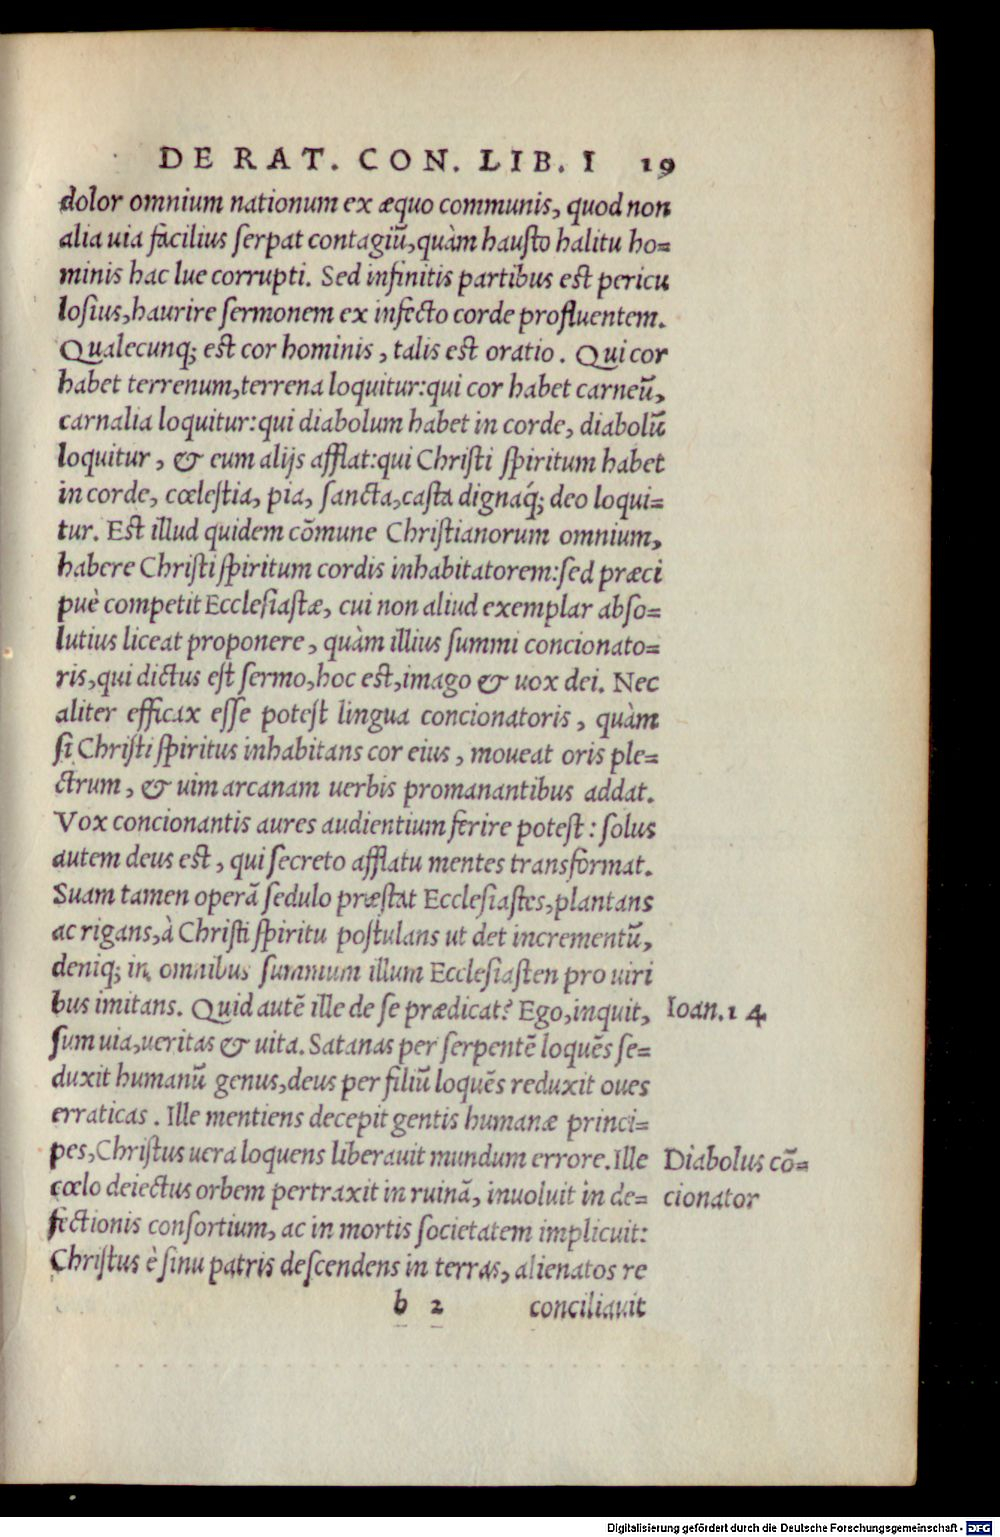 DE RAT. CON. LIB. I 19
dolor omnium nationum ex æquo communis, quod non
alia uia facilius serpat contagiũ, quàm hausto halitu ho=
minis hac lue corrupti. Sed infinitis partibus est pericu
losius, haurire sermonem ex infecto corde profluentem.
Qualecunq; est cor hominis, talis est oratio. Qui cor
habet terrenum, terrena loquitur: qui cor habet carneũ,
carnalia loquitur: qui diabolum habet in corde, diabolũ
loquitur, & eum alijs afflat: qui Christi spiritum habet
in corde, cœlestia, pia, sancta, casta dignaq́; deo loqui=
tur. Est illud quidem cõmune Christianorum omnium,
habere Christi spiritum cordis inhabitatorem: sed præci
puè competit Ecclesiastæ, cui non aliud exemplar abso=
lutius liceat proponere, quàm illius summi concionato=
ris, qui dictus est sermo, hoc est, imago & uox dei. Nec
aliter efficax esse potest lingua concionatoris, quàm
si Christi spiritus inhabitans cor eius, moueat oris ple=
ctrum, & uim arcanam uerbis promanantibus addat.
Vox concionantis aures audientium ferire potest: solus
autem deus est, qui secreto afflatu mentes transformat.
Suam tamen operã sedulo præstat Ecclesiastes, plantans
ac rigans, à Christi spiritu postulans ut det incrementũ,
deniq; in omnibus summum illum Ecclesiasten pro uiri
bus imitans. Quid autẽ ille de se prædicat? Ego, inquit, Ioan. 14
sum uia, ueritas & uita. Satanas per serpentẽ loquẽs se=
duxit humanũ genus, deus per filiũ loquẽs reduxit oues
erraticas. Ille mentiens decepit gentis humanæ princi=
pes, Christus uera loquens liberauit mundum errore. Ille Diabolus cõ=
cœlo deiectus orbem pertraxit in ruinã, inuoluit in de= cionator
fectionis consortium, ac in mortis societatem implicuit:
Christus è sinu patris descendens in terras, alienatos re
b 2 conciliauit
Digitalisierung gefördert durch die Deutsche Forschungsgemeinschaft - DFG